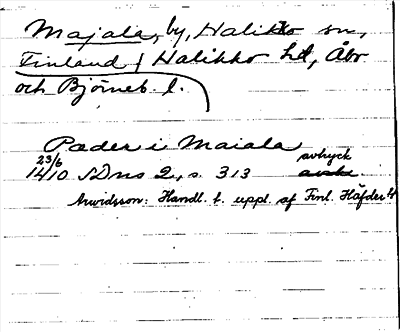 Majala, by, Halikko sn,
Finland (Halikko hd, Åbo
och Björneb. l.
Pæder i Maiala
23/6 1410 SDns 2, s. 313 avtryck
Arwidsson: Handl. t. uppl. af Finl. Häfder